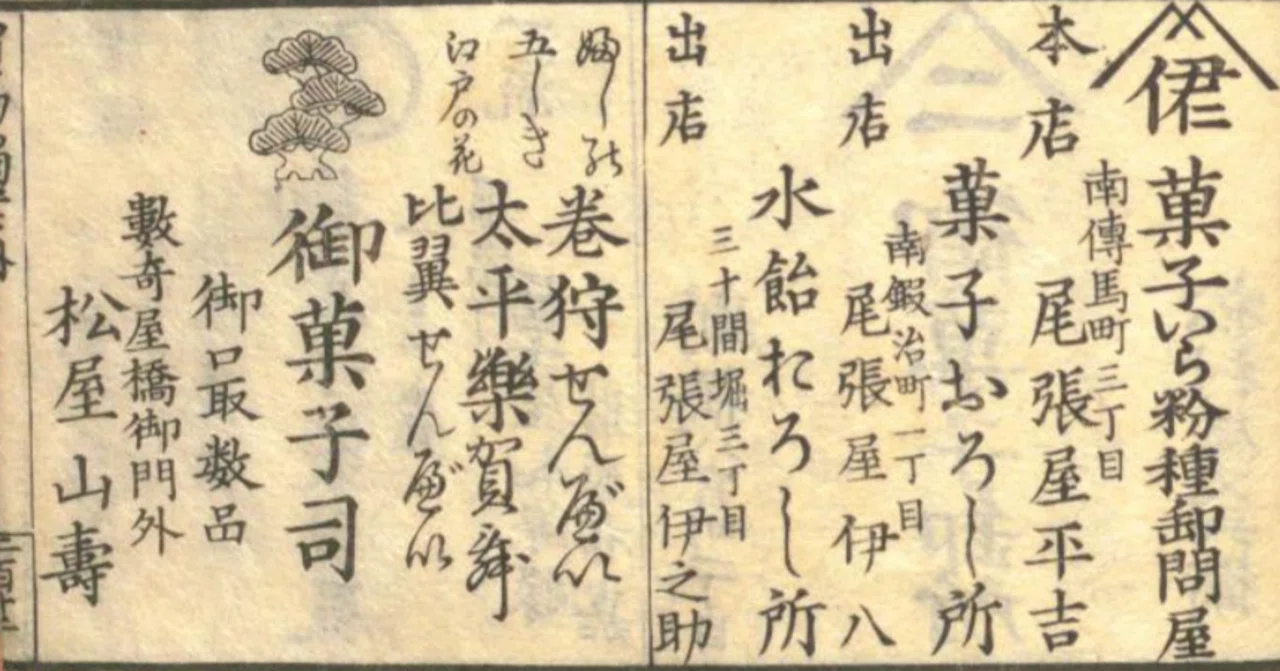 菓子いら粉種卸問屋
南傳馬町三丁目
本店 尾張屋平吉
菓子おろし所
南鍜冶町一丁目
出店 尾張屋伊八
水飴おろし所
三十間堀三丁目
出店 尾張屋伊之助
巻狩せんべい
五しき 太平樂賀舞
江戸の花 比翼せんべい
御菓子司
御口取数品
數寄屋橋御門外
松屋山壽